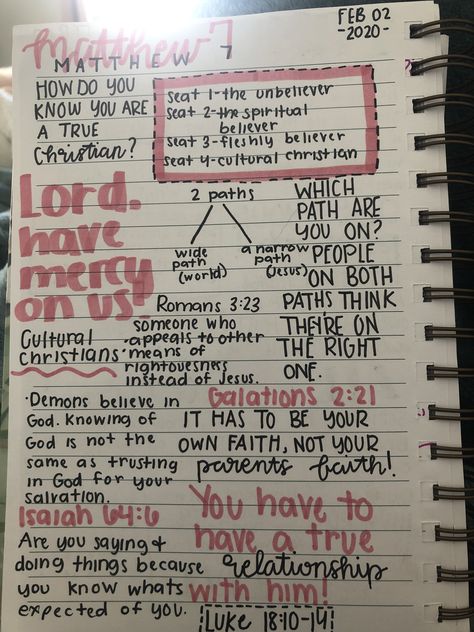 FEB 02
-2020-
Matthew 7
MATTHEW 7
HOW DO YOU
KNOW YOU ARE
A TRUE
Christian?
seat 1-the unbeliever
seat 2-the spiritual
believer
seat 3-fleshly believer
seat 4-cultural christian
Lord.
have
mercy
on us!
2 paths
wide
path
(world)
a narrow
path
(Jesus)
WHICH
PATH ARE
YOU ON?
PEOPLE
ON BOTH
PATHS THINK
THEIRE ON
THE RIGHT
ONE.
Romans 3:23
Cultural
Christians
someone who
appeals to other
means of
rightouesness
instead of Jesus.
·Demons believe in
God. Knowing of
God is not the
same as trusting
in God for your
salvation.
Galations 2:21
IT HAS TO BE YOUR
OWN FAITH, NOT YOUR
parents faith!
Isaiah 64:6
Are you saying +
doing things because
you know whats
expected of you.
You have to
have a true
relationship
with him!
Luke 18:10-14